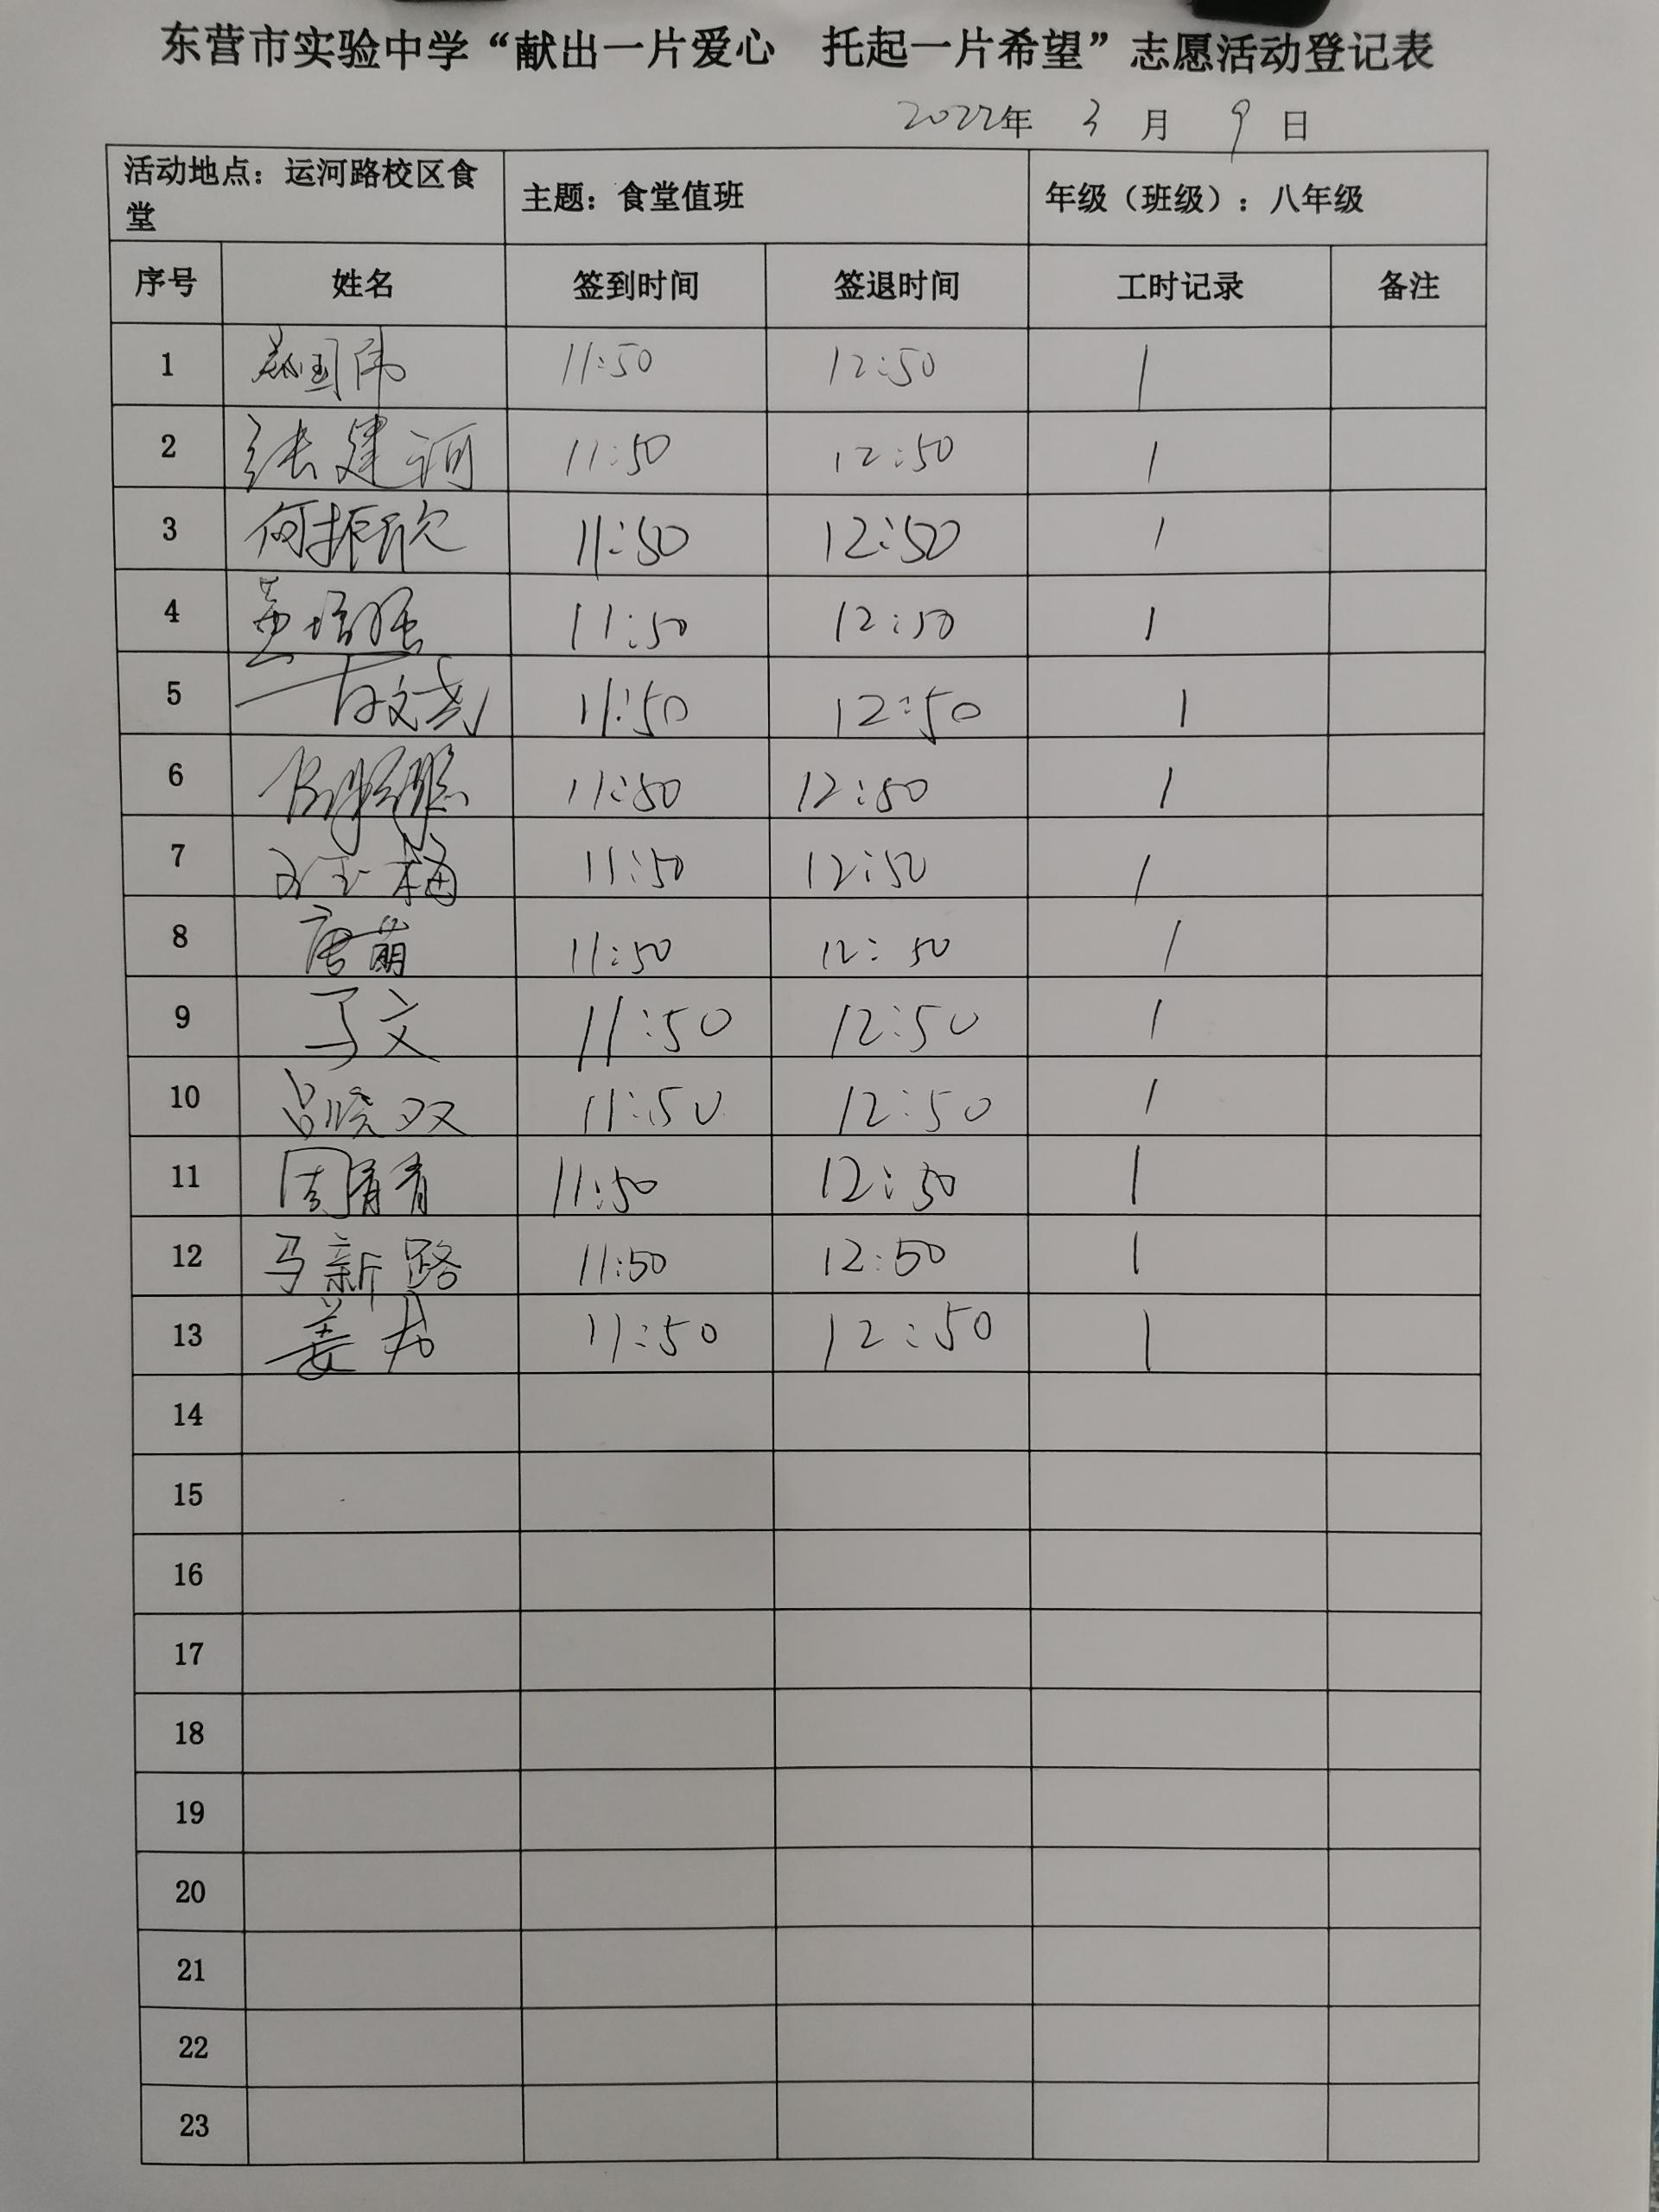 东营市实验中学“献出一片爱心 托起一片希望”志愿活动登记表
2022年 3 月 9 日
活动地点：运河路校区食堂 主题：食堂值班 年级（班级）：八年级
序号 姓名 签到时间 签退时间 工时记录 备注
1 国伟 11:50 12:50 1
2 张建河 11:50 12:50 1
3 何振欣 11:50 12:50 1
4 11:50 12:50 1
5 11:50 12:50 1
6 11:50 12:50 1
7 玉梅 11:50 12:50 1
8 唐萌 11:50 12:50 1
9 马文 11:50 12:50 1
10 吕晓双 11:50 12:50 1
11 周青青 11:50 12:50 1
12 马新路 11:50 12:50 1
13 姜 11:50 12:50 1
14
15
16
17
18
19
20
21
22
23